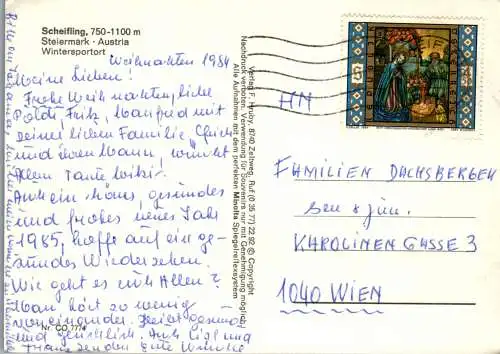 Scheifling, 750-1100 m
Steiermark · Austria
Wintersportort
Weihnachten 1984
Meine Lieben!
Frohe Weihnachten, liebe
Poldi, Fritz, Manfred mit
seiner lieben Familie,
und ihren Mann, wünscht
Allen Tante
Auch ein schönes, gesundes
und frohes neues Jahr
1985, hoffe auf ein ge-
sundes Wiedersehen.
Wie geht es euch Allen?
Man hört so wenig
voneinander. Bleibt gesund
und glücklich. Auch
Gute Wünsche
Nr. CO 7774
Verlag F. Hruby, 8740 Zeltweg, Ruf (0 35 77) 22 92 © Copyright
Nachdruck verboten. Verwendung für Souvenirs nur mit Genehmigung möglich!
Alle Aufnahmen mit dem perfekten Minolta Spiegelreflexsystem
AN
FAMILIEN DACHSBERGER
sen & jun.
KAROLINEN GASSE 3
1040 WIEN